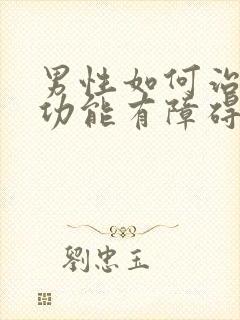 男性如何治
功能有障碍
劉忠玉